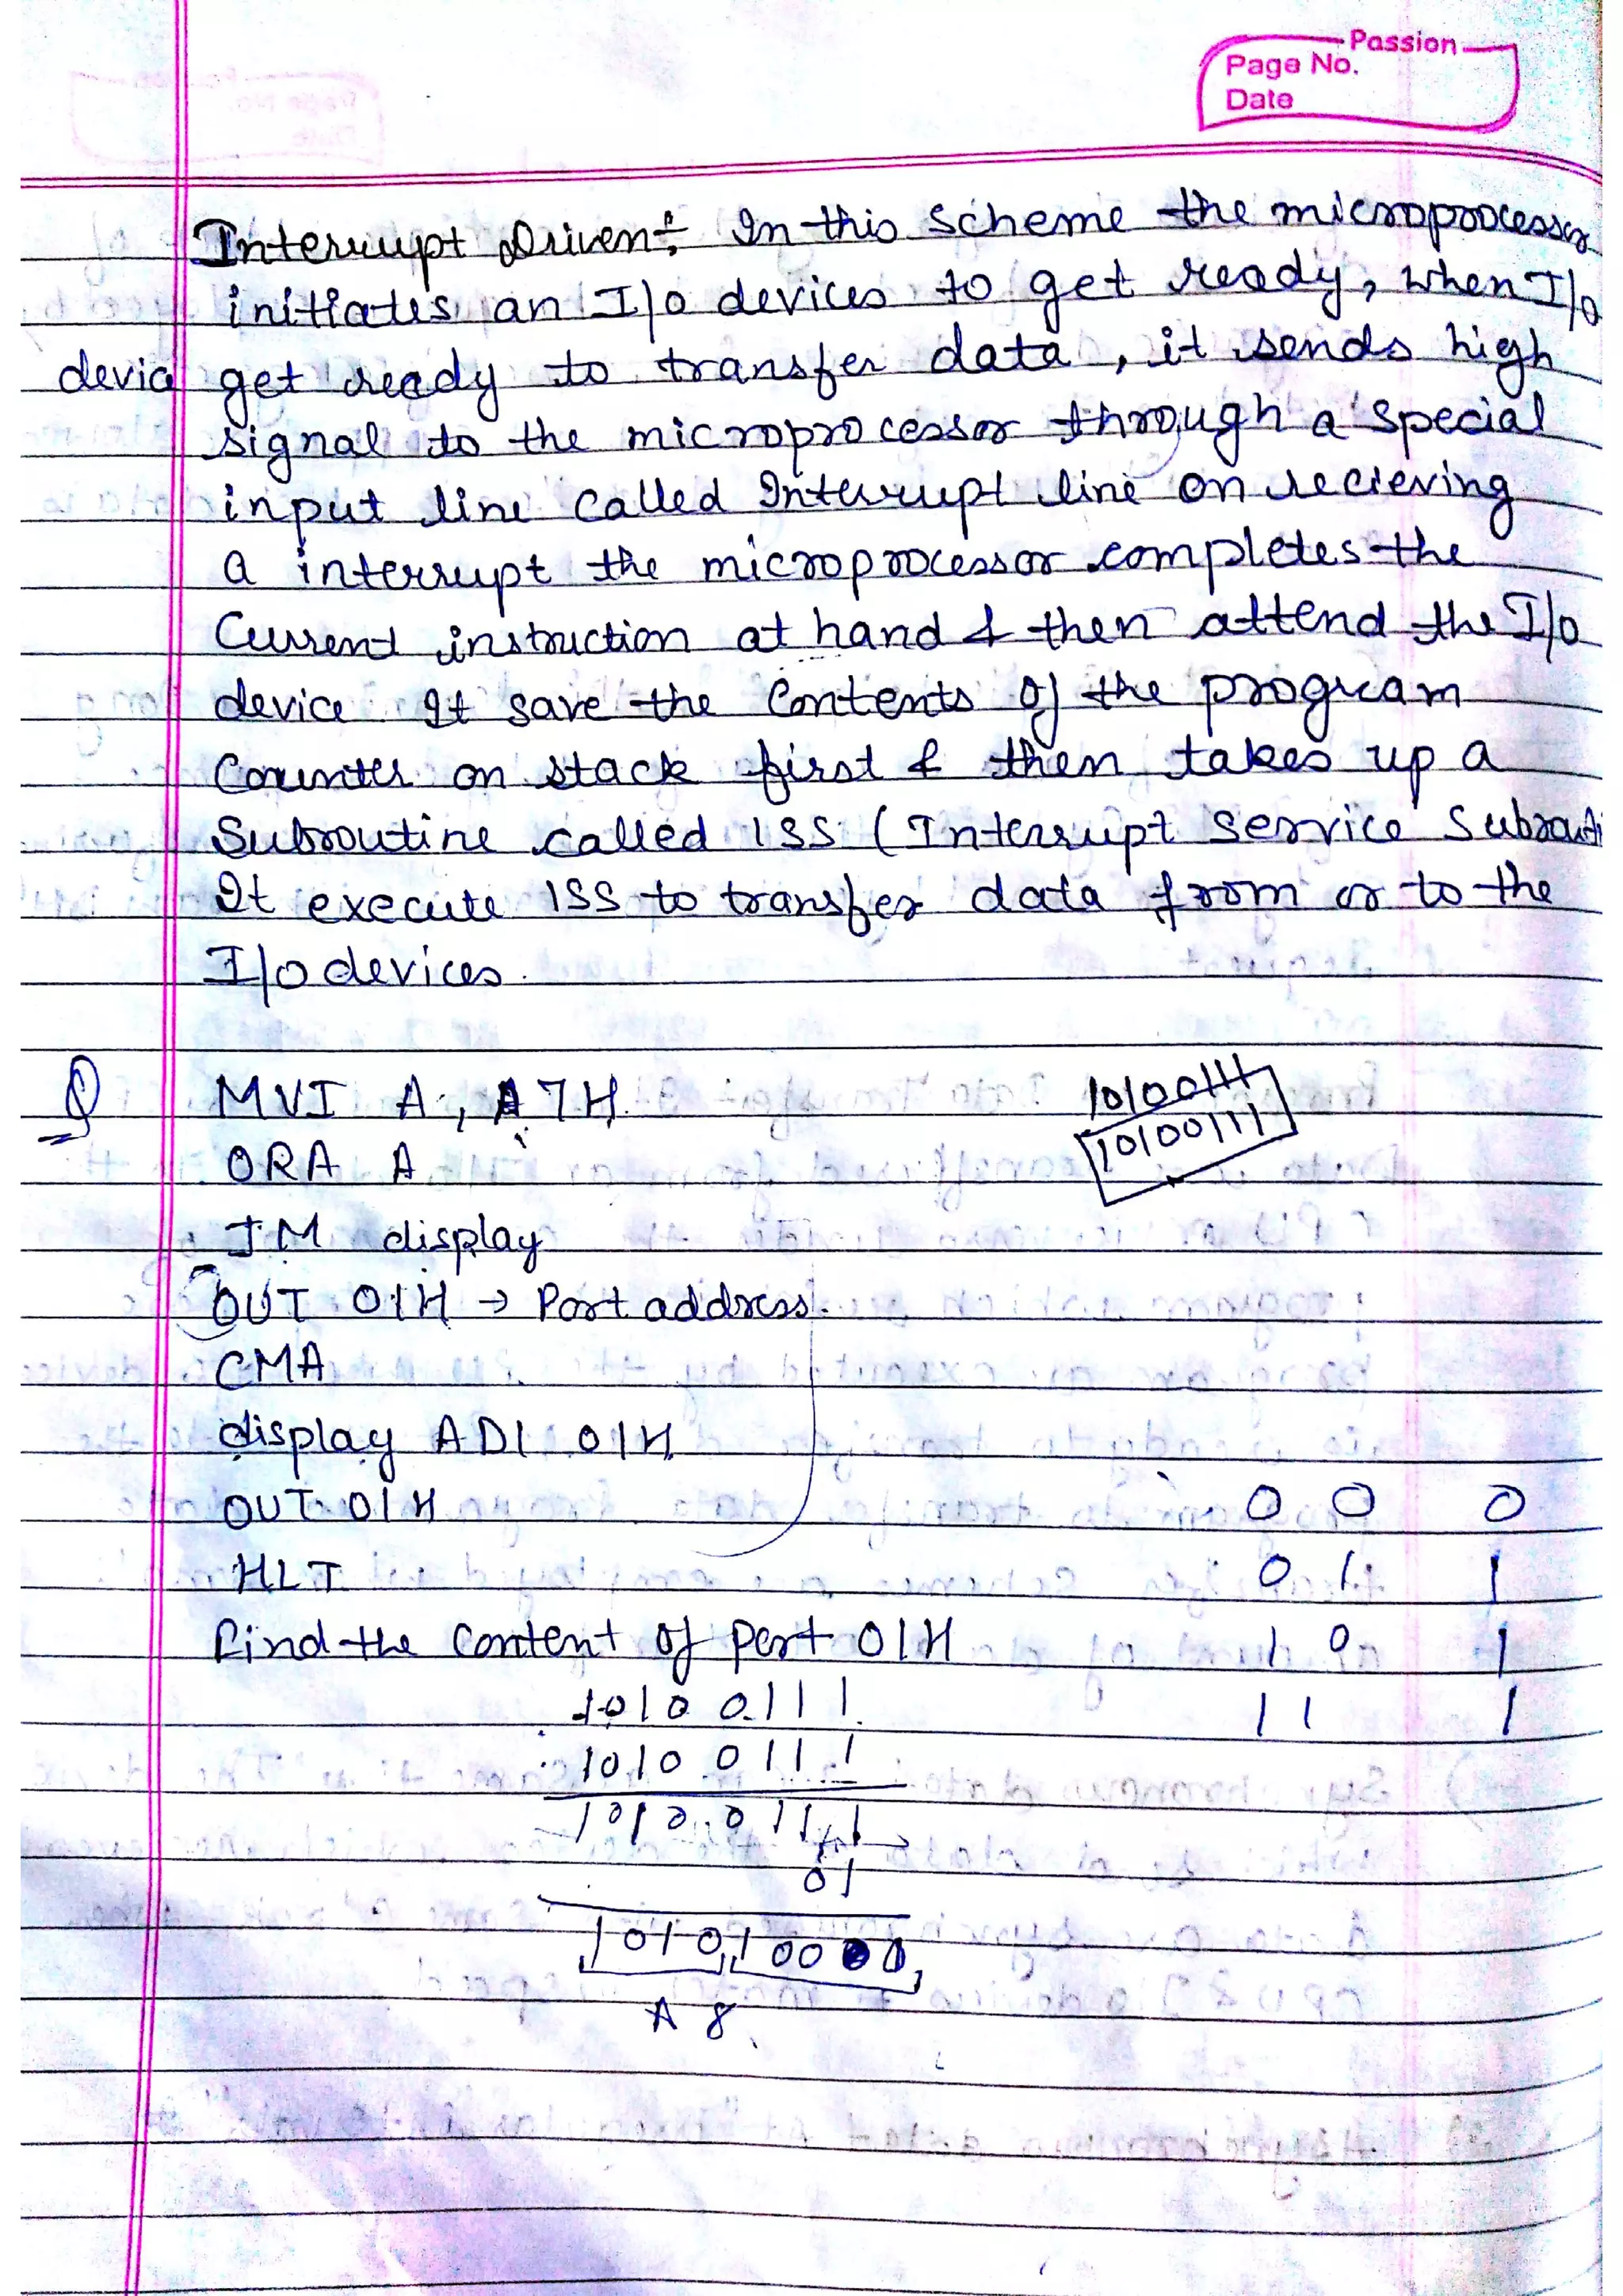 Passion
Page No.
Date
Interrupt Driven:- In this scheme the microprocessor
initiates an I/o devices to get ready, when I/o
device get ready to transfer data, it sends high
signal to the microprocessor through a special
input line called Interrupt line on recieving
a interrupt the microprocessor completes the
Current instruction at hand & then attend the I/o
device It save the Contents of the program
Counter on stack first & then takes up a
Subroutine called ISS (Interrupt service Subrouti
It execute ISS to transfer data from or to the
I/o devices.
Q MVI A, A7H 10100111
10100111
ORA A
JM display
OUT 01H → Port address.
CMA
display ADI 01H
OUT 01H 0 0 0
HLT 0 1 1
Find the content of port 01H 1 0 1
10100111 1 1 1
10100111
10100111
01
A 8